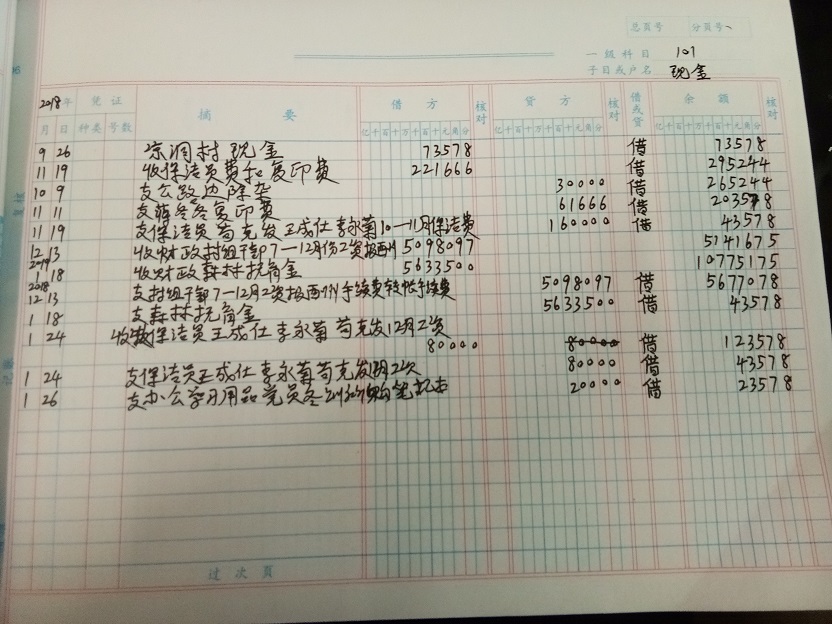 总页号 分页号
一级科目 101
子目或户名 现金
2018年 凭证 摘要 借方 核对 贷方 核对 借或贷 余额 核对
月 日 种类 号数 亿千百十万千百十元角分 亿千百十万千百十元角分 亿千百十万千百十元角分
9 26 凉洞村 现金 73578 借 73578
11 19 收保洁员费和复印费 221666 借 295244
10 9 支公路边除草 30000 借 265244
11 11 支 冬冬复印费 61666 借 203578
11 19 支保洁员苟克发王成仕李永菊10—11月保洁费 160000 借 43578
12 13 收财政村组干部7—12月份工资报 5098097 5141675
2019
1 18 收财政森林抚育金 5633500 10775175
2018
12 13 支村组干部7—12月工资报 手续费转帐手续费 5098097 借 5677078
1 18 支森林抚育金 5633500 借 43578
1 24 收 保洁员王成仕李永菊苟克发12月工资
80000 80000 借 123578
1 24 支保洁员王成仕李永菊苟克发 80000 借 43578
1 26 支办公学习用品党员冬 笔记本 20000 借 23578
过次页